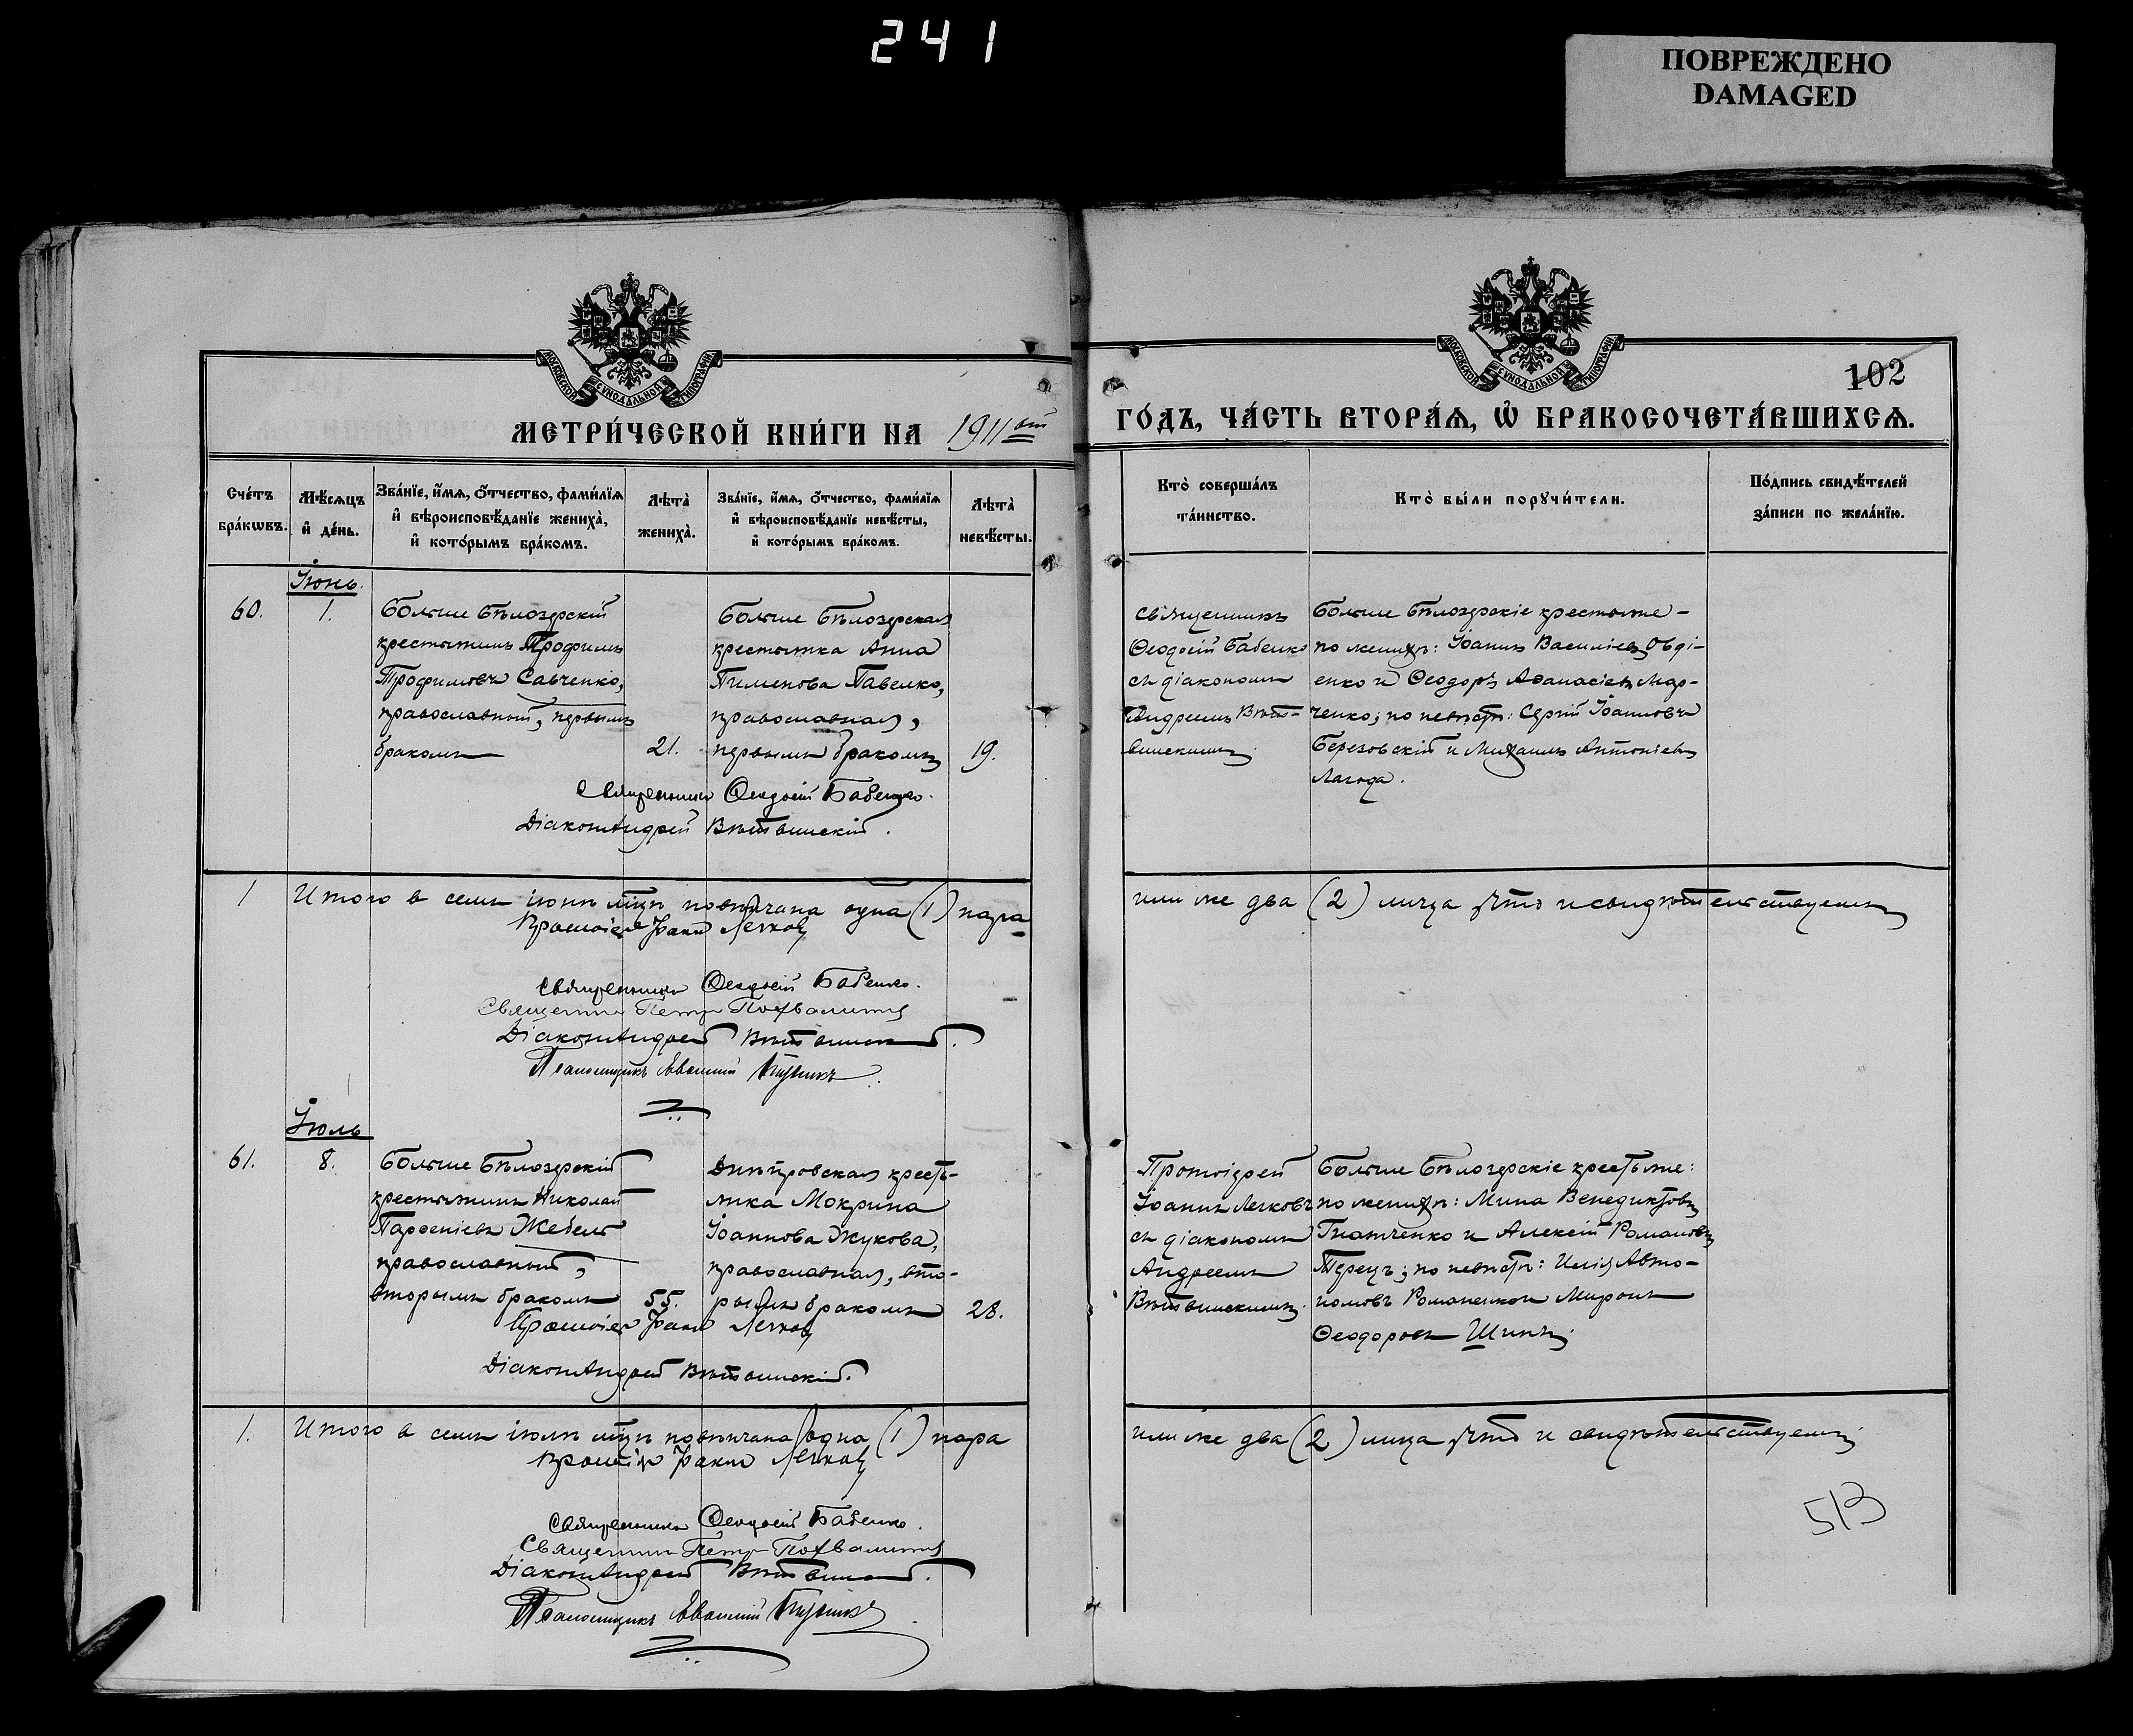 241
ПОВРЕЖДЕНО
DAMAGED
МОСКОВСКОЙ СѴНОДАЛЬНОЙ ТИПОГРАФІИ
МОСКОВСКОЙ СѴНОДАЛЬНОЙ ТИПОГРАФІИ
102
МЕТРИ́ЧЕСКОЙ КНИ́ГИ НА 1911ый
ГО́ДЪ, ЧА́СТЬ ВТОРА́Ѧ, Ѽ БРАКОСОЧЕТА́ВШИХСѦ.
Сче́тъ бра́кѡвъ.
Мѣ́сѧцъ и҆ де́нь.
Зва́нїе, и҆́мѧ, ѻ҆́тчество, фами́лїѧ
и҆ вѣроисповѣ́данїе жениха̀,
и҆ кото́рымъ бра́комъ.
Лѣ́та̀ жениха̀.
Зва́нїе, и҆́мѧ, ѻ҆́тчество, фами́лїѧ
и҆ вѣроисповѣ́данїе невѣ́сты,
и҆ кото́рымъ бра́комъ.
Лѣ́та̀ невѣ́сты.
Кто̀ соверша́лъ
та́инство.
Кто̀ бы́ли порꙋчи́тели.
По́дпись свидѣ́телей
за́писи по жела́нїю.
Іюнь.
60.
1.
Больше Бѣлозерскій
крестьянинъ Трофимъ
Трофимовъ Савченко,
православный, первымъ
бракомъ
21.
Больше Бѣлозерская
крестьянка Анна
Пименова Павенко,
православная,
первымъ бракомъ
19.
Священникъ
Ѳеодосій Бабенко
съ діакономъ
Андреемъ Вѣт-
винскимъ
Больше Бѣлозерскіе крестьяне -
по женихѣ: Іоаннъ Васильевъ Овді-
енко и Ѳеодоръ Аѳанасіевъ Мар-
ченко; по невѣстѣ: Сергій Іоанновъ
Березовскій и Михаилъ Антоніевъ
Лагода.
Священникъ Ѳеодосій Бабенко.
Діаконъ Андрей Вѣтвинскій.
1
Итого в семъ іюнѣ мцѣ повѣнчана одна (1) пара
или же два (2) лица что и свидѣтельствуемъ
Протоіерей Іоаннъ Лечковъ
Священникъ Ѳеодосій Бабенко.
Священникъ Петръ
Діаконъ Андрей Вѣтвинскій.
Псаломщикъ
Іюль
61.
8.
Больше Бѣлозерскій
крестьянинъ Николай
Парѳеніевъ Жебель
православный,
вторымъ бракомъ
55.
Днѣпровская кресть-
янка Мокрина
Іоаннова Жукова,
православная, вто-
рымъ бракомъ
28.
Протоіерей
Іоаннъ Лечковъ
съ діакономъ
Андреемъ
Вѣтвинскимъ.
Больше Бѣлозерскіе крестьяне:
по женихѣ: Мина Венедиктовъ
Гнатченко и Алексій Романовъ
Терецъ; по невѣстѣ: Илія Авто-
номовъ Романенко и Миронъ
Ѳеодоровъ
Протоіерей Іоаннъ Лечковъ
Діаконъ Андрей Вѣтвинскій.
1.
Итого в семъ іюлѣ мцѣ повѣнчана одна (1) пара
или же два (2) лица что и свидѣтельствуемъ
Протоіерей Іоаннъ Лечковъ
513
Священникъ Ѳеодосій Бабенко.
Священникъ Петръ
Діаконъ Андрей Вѣтвинскій.
Псаломщикъ